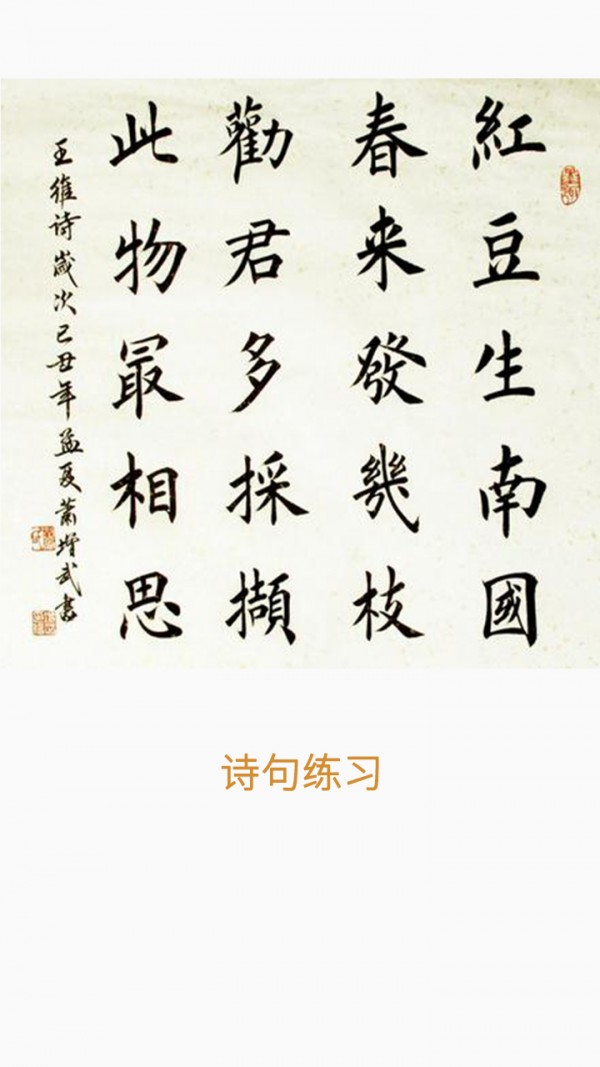 紅豆生南國
春来發幾枝
勸君多採擷
此物最相思
王維诗歲次己丑年孟夏蕭增武書
诗句练习